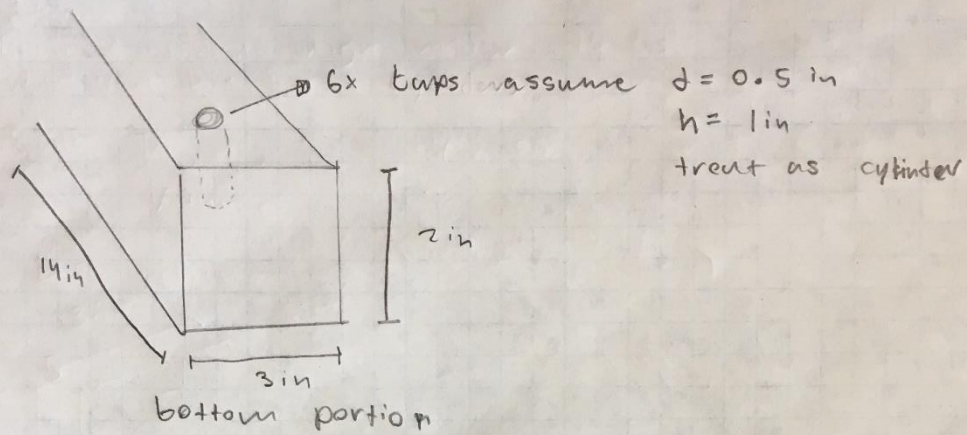 6x taps assume d = 0.5 in
h = 1in
treat as cylinder
2in
14in
3in
bottom portion